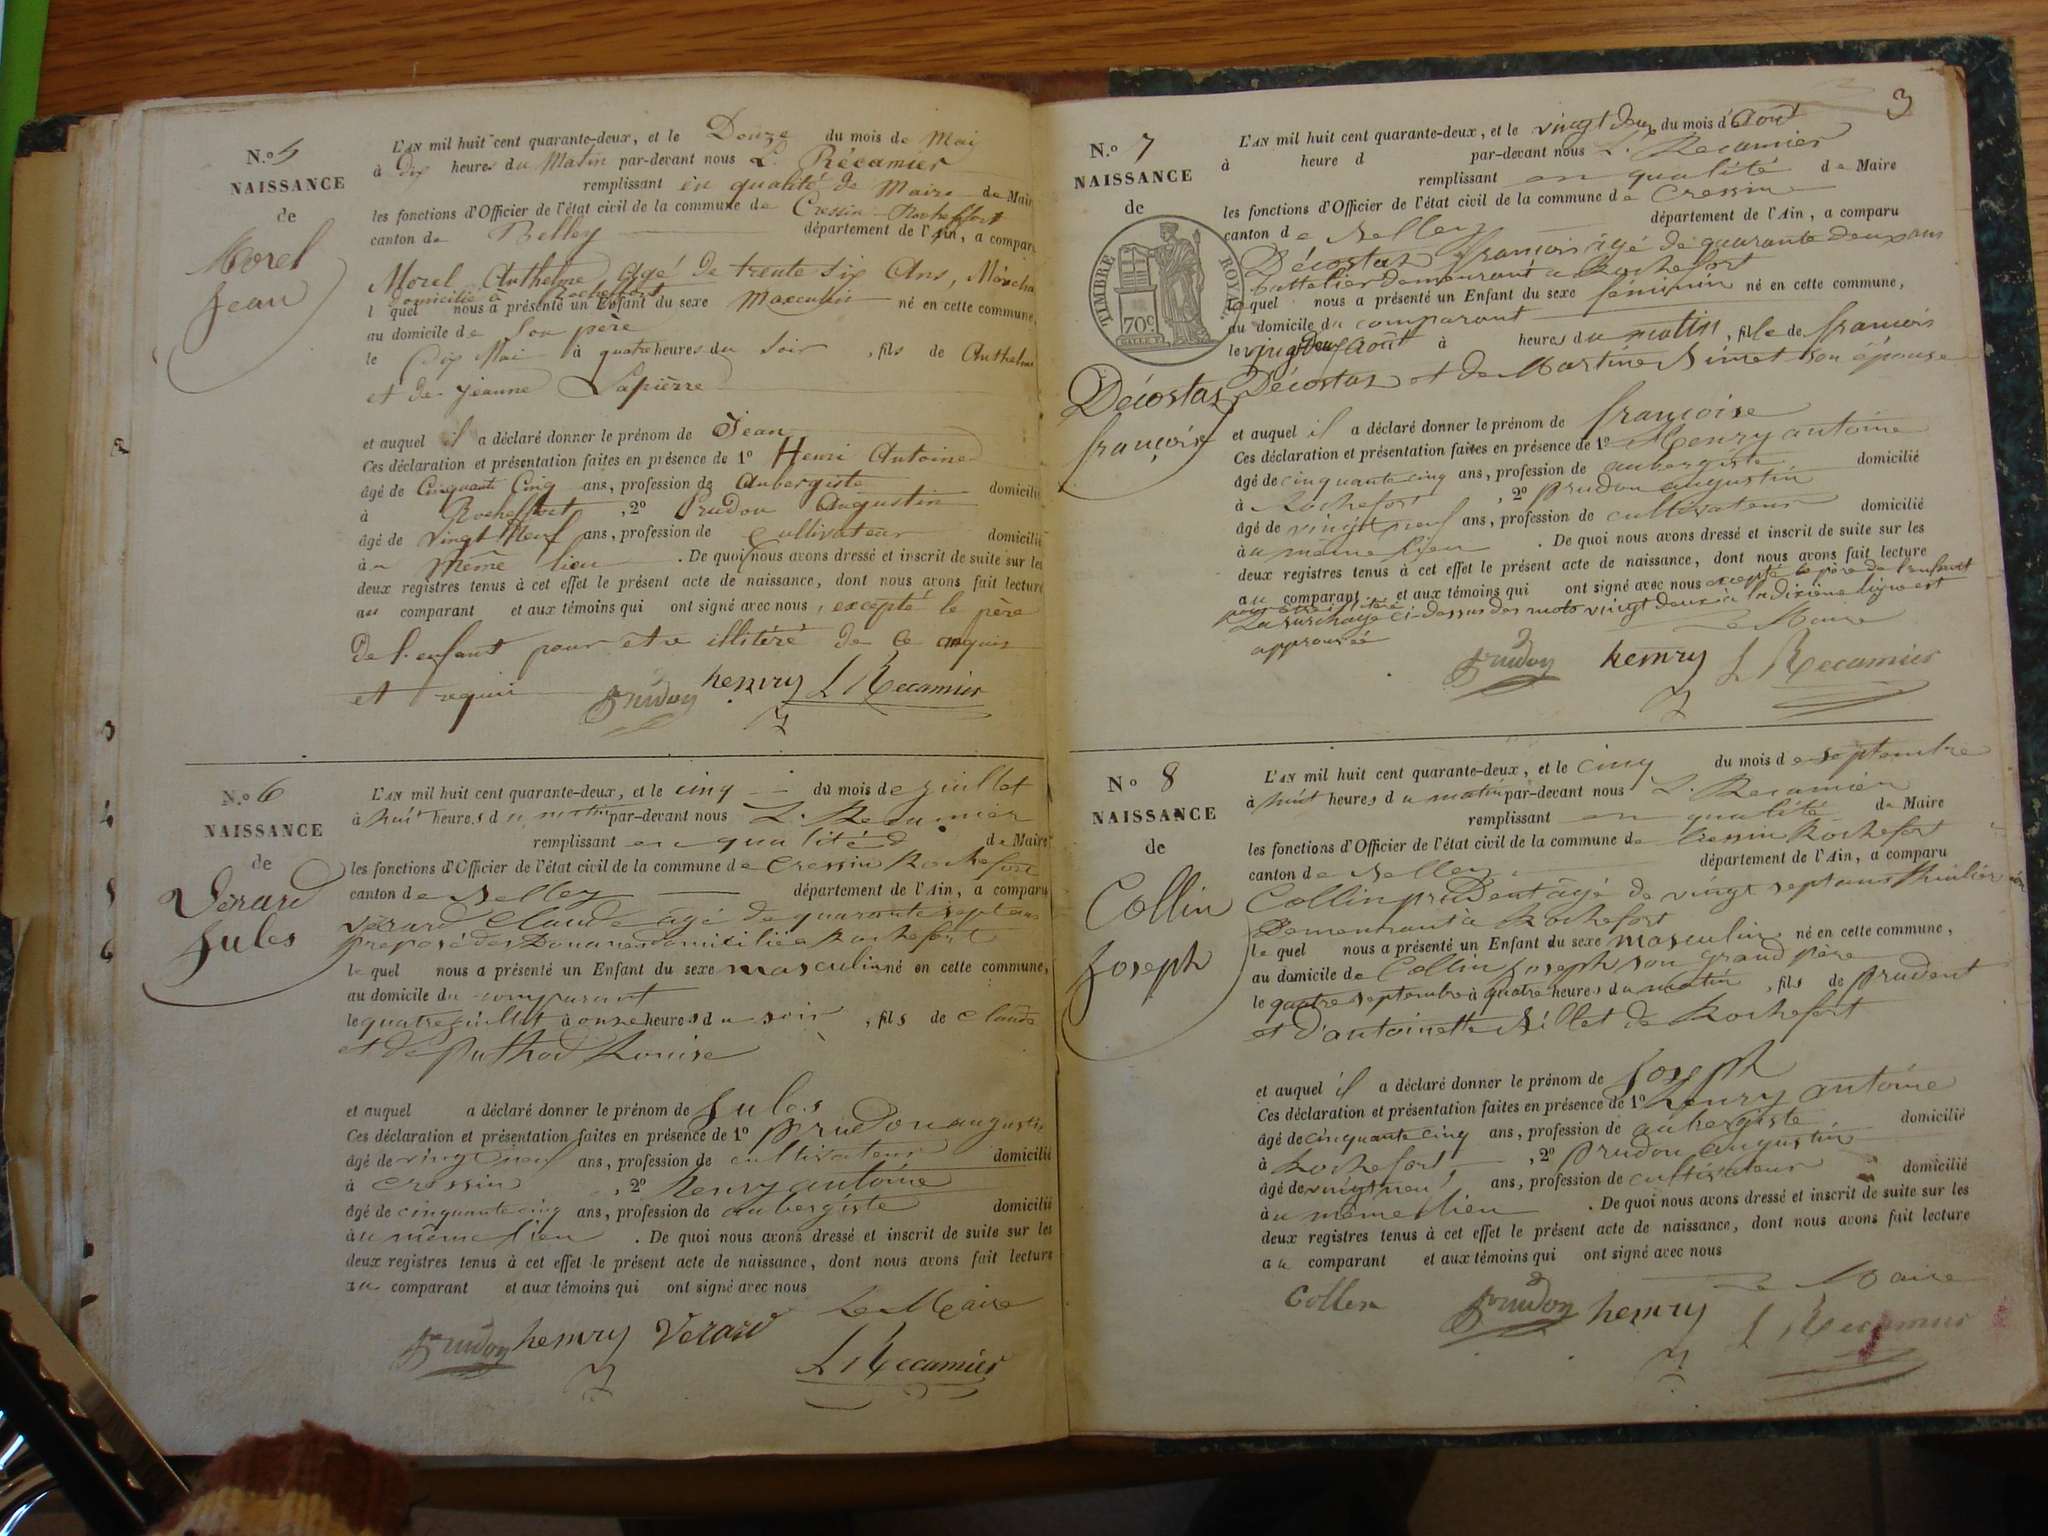 N.º 5
NAISSANCE
de
Morel
Jean
L'AN mil huit cent quarante-deux, et le Douze du mois de Mai
à dix heures du Matin par-devant nous L. Récamier
remplissant en qualité de Maire de Maire
les fonctions d'Officier de l'état civil de la commune de Cressin-Rocheffort
canton de Belley département de l'Ain, a comparu
Morel Anthelme, Agé de trente six Ans,
domicilié à Rocheffort
l quel nous a présenté un Enfant du sexe Masculin né en cette commune,
au domicile de Son père
le Dix Mai à quatre heures du Soir, fils de Anthelme
et de Jeanne Lapièrre
et auquel il a déclaré donner le prénom de Jean
Ces déclaration et présentation faites en présence de 1º Henri Antoine
âgé de Cinquante Cinq ans, profession de Aubergiste domicilié
à Rocheffort, 2º Prudon Augustin
âgé de Vingt Neuf ans, profession de Cultivateur domicilié
à u même lieu. De quoi nous avons dressé et inscrit de suite sur les
deux registres tenus à cet effet le présent acte de naissance, dont nous avons fait lecture
au comparant et aux témoins qui ont signé avec nous, excepté le père
de l'enfant pour etre illitéré de ce enquis
et requis
Prudon henry L Recamier
N.º 6
NAISSANCE
de
Vérard
Jules
L'AN mil huit cent quarante-deux, et le cinq du mois de juillet
à huit heures du matin par-devant nous L. Recamier
remplissant en qualité d de Maire
les fonctions d'Officier de l'état civil de la commune de Cressin Rochefort
canton de Belley département de l'Ain, a comparu
vérard Claude agé de quarante sept ans
preposé des Douanes domicilié a Rochefort
le quel nous a présenté un Enfant du sexe masculin né en cette commune,
au domicile du comparant
le quatre juillet à onze heures du soir, fils de Claude
et de Puthod Louise
et auquel a déclaré donner le prénom de Jules
Ces déclaration et présentation faites en présence de 1º Prudon augustin
âgé de vingt neuf ans, profession de cultivateur domicilié
à Cressin, 2º henry antoine
âgé de cinquante cinq ans, profession de aubergiste domicilié
à u même lieu. De quoi nous avons dressé et inscrit de suite sur les
deux registres tenus à cet effet le présent acte de naissance, dont nous avons fait lecture
au comparant et aux témoins qui ont signé avec nous
Le Maire
Prudon henry Verard
L Recamier
3
N.º 7
NAISSANCE
de
TIMBRE ROYAL
70c
Décostas
françoise
L'AN mil huit cent quarante-deux, et le vingt deux du mois d'Aout
à heure d par-devant nous L. Recamier
remplissant en qualité de Maire
les fonctions d'Officier de l'état civil de la commune de Cressin
canton de Belley département de l'Ain, a comparu
Décostas françois agé de quarante deux ans
battelier demeurant a Rochefort
le quel nous a présenté un Enfant du sexe féminin né en cette commune,
au domicile du comparant
le vingt deux Août à heures du matin, fille de francois
Décostas et de Martine son épouse
et auquel il a déclaré donner le prénom de françoise
Ces déclaration et présentation faites en présence de 1º Henry antoine
âgé de cinquante cinq ans, profession de aubergiste domicilié
à Rochefort, 2º prudon augustin
âgé de vingt neuf ans, profession de cultivateur domicilié
à u même lieu. De quoi nous avons dressé et inscrit de suite sur les
deux registres tenus à cet effet le présent acte de naissance, dont nous avons fait lecture
au comparant et aux témoins qui ont signé avec nous excepté le père de l'enfant
La surchage ci-dessus des mots vingt deux à la dixieme ligne est
approuvée
Le Maire
Prudon henry L Recamier
Nº 8
NAISSANCE
de
Collin
Joseph
L'AN mil huit cent quarante-deux, et le cinq du mois de septembre
à huit heures du matin par-devant nous L. Recamier
remplissant en qualité de Maire
les fonctions d'Officier de l'état civil de la commune de Cressin Rochefort
canton de Belley département de l'Ain, a comparu
Collin prudent agé de vingt sept ans
Demeurant à Rochefort
le quel nous a présenté un Enfant du sexe masculin né en cette commune,
au domicile de Collin Joseph son grand père
le quatre septembre à quatre heures du matin, fils de prudent
et d'antoinette Billet de Rochefort
et auquel il a déclaré donner le prénom de Joseph
Ces déclaration et présentation faites en présence de 1º henry antoine
âgé de cinquante cinq ans, profession de aubergiste domicilié
à Rochefort, 2º prudon augustin
âgé de vingt neuf ans, profession de cultivateur domicilié
à u même lieu. De quoi nous avons dressé et inscrit de suite sur les
deux registres tenus à cet effet le présent acte de naissance, dont nous avons fait lecture
au comparant et aux témoins qui ont signé avec nous
Le Maire
Collin Prudon henry L Recamier